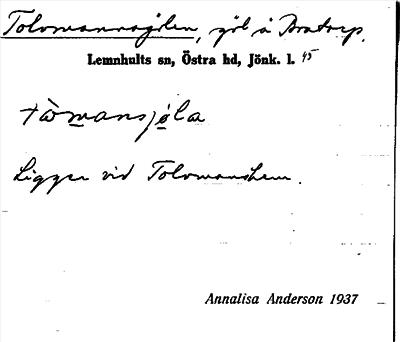 Tolvmannagölen, göl å Bratorp.
Lemnhults sn, Östra hd, Jönk. l. 45
tåmansjøla
Ligger vid Tolvmanshem.
Annalisa Anderson 1937